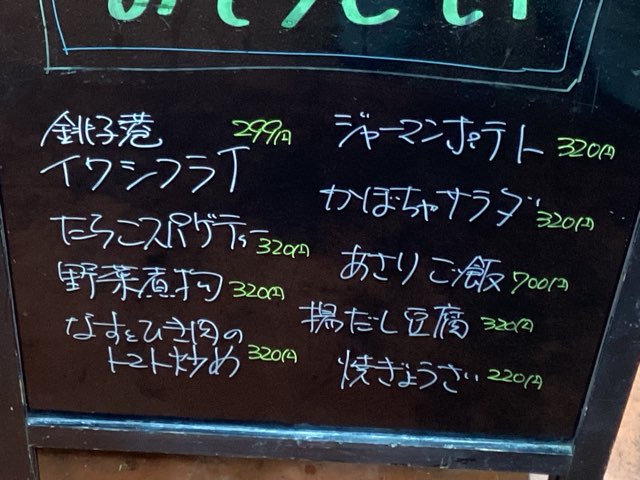 銚子港 299円
イワシフライ
たらこスパゲティー 320円
野菜煮物 320円
なすとひき肉の
トマト炒め 320円
ジャーマンポテト 320円
かぼちゃサラダ 320円
あさりご飯 700円
揚だし豆腐 320円
焼ぎょうざ 220円